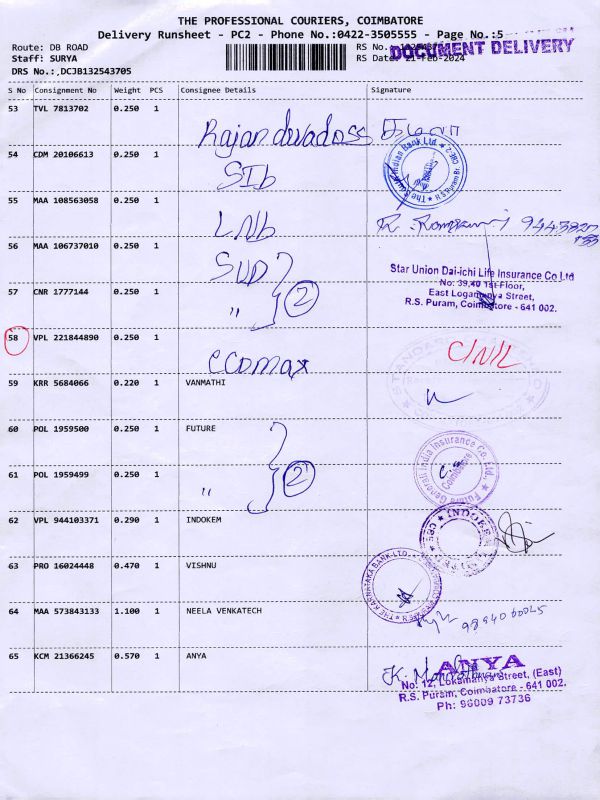 THE PROFESSIONAL COURIERS, COIMBATORE
Delivery Runsheet - PC2 - Phone No.:0422-3505555 - Page No.:5
Route: DB ROAD
Staff: SURYA
DRS No.:,DCJB132543705
RS No.:
RS Date: 21-Feb-2024
DOCUMENT DELIVERY
S No Consignment No Weight PCS Consignee Details Signature
53 TVL 7813702 0.250 1
Rajan devadoss கமலா
54 CDM 20106613 0.250 1
SIb
55 MAA 108563058 0.250 1
LNb
56 MAA 106737010 0.250 1
SUD
Star Union Dai-ichi Life Insurance Co Ltd
No: 39,40 1st Floor,
East Logamanya Street,
R.S. Puram, Coimbatore - 641 002.
57 CNR 1777144 0.250 1
" 2
58 VPL 221844890 0.250 1
ecomax
59 KRR 5684066 0.220 1 VANMATHI
60 POL 1959500 0.250 1 FUTURE
Future Generali India Insurance Co. Ltd.,
Coimbatore
61 POL 1959499 0.250 1
" 2
62 VPL 944103371 0.290 1 INDOKEM
INDOKEM
CBE
63 PRO 16024448 0.470 1 VISHNU
THE KARNATAKA BANK LTD.
64 MAA 573843133 1.100 1 NEELA VENKATECH
65 KCM 21366245 0.570 1 ANYA
ANYA
No: 12, Lokamanya Street, (East)
R.S. Puram, Coimbatore - 641 002.
Ph: 96009 73736